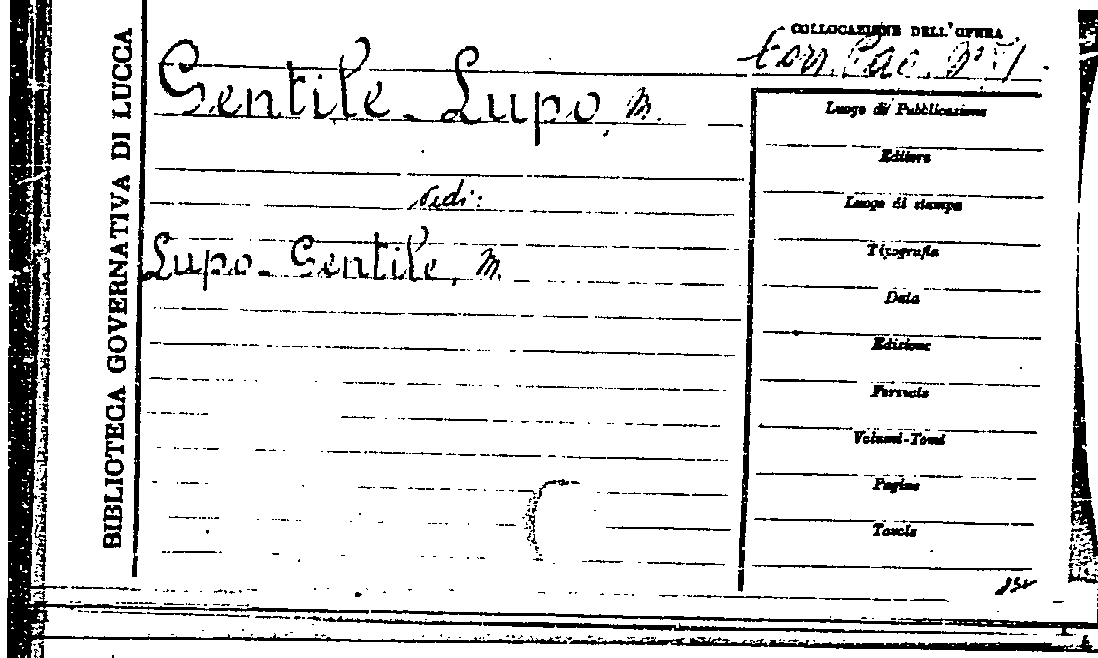 BIBLIOTECA GOVERNATIVA DI LUCCA
COLLOCAZIONE DELL'OPERA
Gentile Lupo, M.
vedi:
Lupo-Gentile, M.
Luogo di Pubblicazione
Editore
Luogo di stampa
Tipografia
Data
Edizione
Formato
Volumi-Tomi
Pagine
Tavole